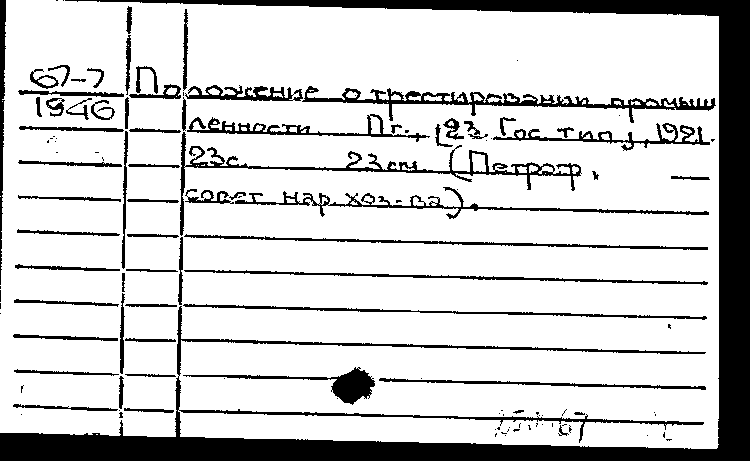 67-7 Положение о трестировании промыш
1946
ленности. Пг., [23. Гос. тип.], 1921.
23с. 23см. (Петрогр.
совет нар. хоз-ва).
67